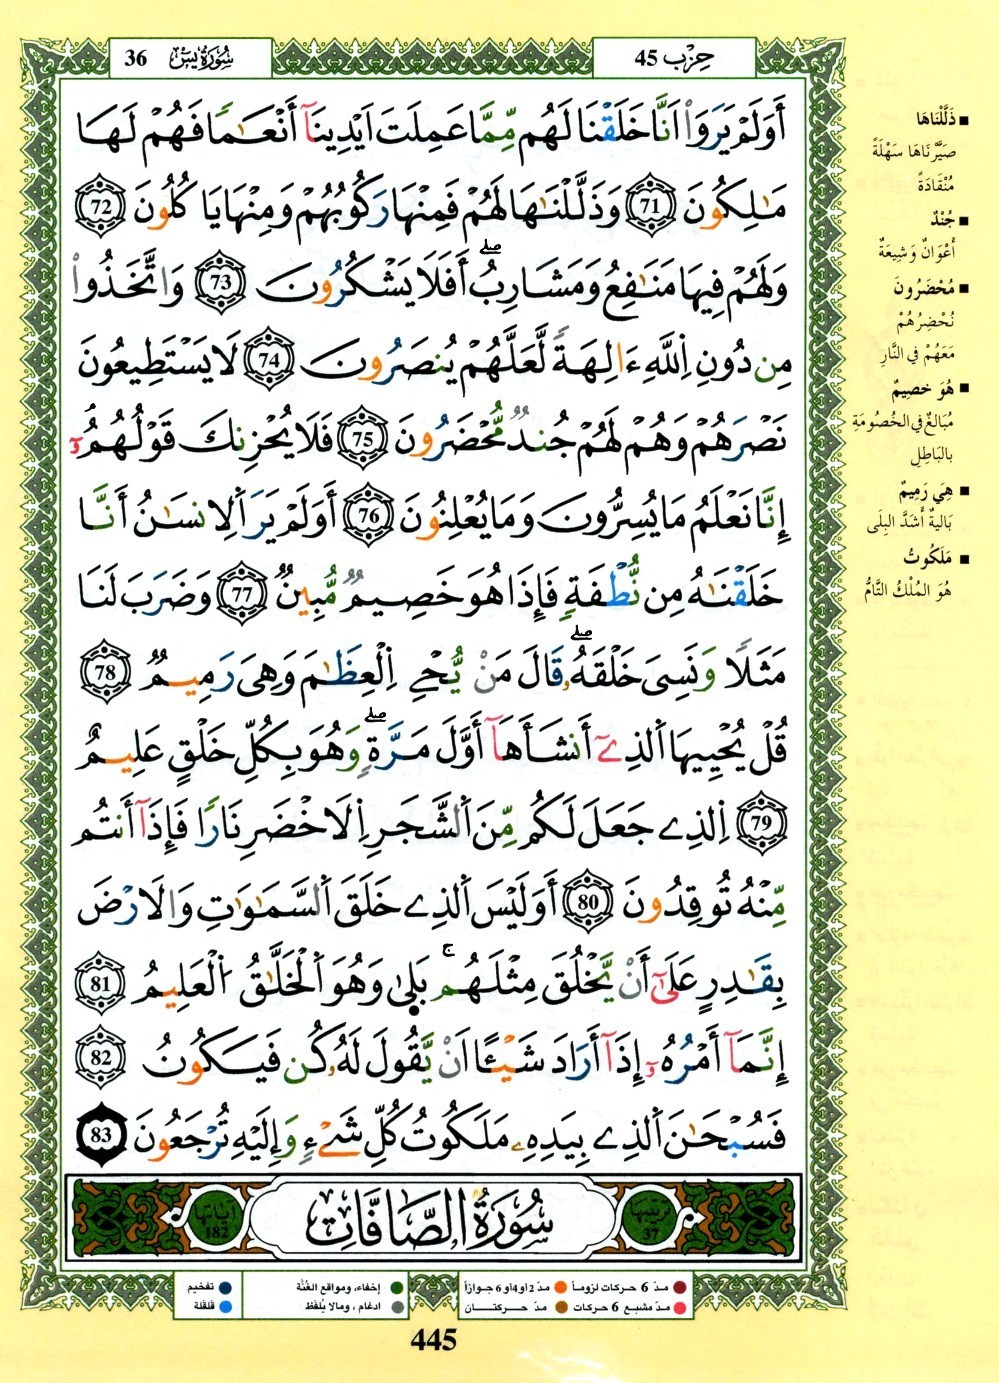 سُورَةُ يسٓ 36
حِزْب 45
أَوَلَمْ يَرَوْاْ اَنَّا خَلَقْنَا لَهُم مِّمَّا عَمِلَتَ اَيْدِينَآ أَنْعَٰمًا فَهُمْ لَهَا
مَٰلِكُونَ 71 وَذَلَّلْنَٰهَا لَهُمْ فَمِنْهَا رَكُوبُهُمْ وَمِنْهَا يَاكُلُونَ 72
وَلَهُمْ فِيهَا مَنَٰفِعُ وَمَشَارِبُۖ أَفَلَا يَشْكُرُونَ 73 وَاتَّخَذُواْ
مِن دُونِ اِ۬للَّهِ ءَالِهَةٗ لَّعَلَّهُمْ يُنصَرُونَ 74 لَا يَسْتَطِيعُونَ
نَصْرَهُمْ وَهُمْ لَهُمْ جُندٞ مُّحْضَرُونَ 75 فَلَا يُحْزِنكَ قَوْلُهُمُۥٓ
إِنَّا نَعْلَمُ مَا يُسِرُّونَ وَمَا يُعْلِنُونَ 76 أَوَلَمْ يَرَ اَ۬لِانسَٰنُ أَنَّا
خَلَقْنَٰهُ مِن نُّطْفَةٖ فَإِذَا هُوَ خَصِيمٞ مُّبِينٞ 77 وَضَرَبَ لَنَا
مَثَلٗا وَنَسِىَ خَلْقَهُۥۖ قَالَ مَنْ يُّحْيِ اِ۬لْعِظَٰمَ وَهِىَ رَمِيمٞ 78
قُلْ يُحْيِيهَا اَ۬لذِےٓ أَنشَأَهَآ أَوَّلَ مَرَّةٖۖ وَهُوَ بِكُلِّ خَلْقٍ عَلِيمٌ
79 اِ۬لذِے جَعَلَ لَكُم مِّنَ اَ۬لشَّجَرِ اِ۬لَاخْضَرِ نَارٗا فَإِذَآ أَنتُم
مِّنْهُ تُوقِدُونَ 80 أَوَلَيْسَ اَ۬لذِے خَلَقَ اَ۬لسَّمَٰوَٰتِ وَالَارْضَ
بِقَٰدِرٍ عَلَىٰٓ أَنْ يَّخْلُقَ مِثْلَهُمۚ بَلَىٰ وَهُوَ اَ۬لْخَلَّٰقُ اُ۬لْعَلِيمُ 81
إِنَّمَآ أَمْرُهُۥٓ إِذَآ أَرَادَ شَيْـًٔا اَنْ يَّقُولَ لَهُۥ كُن فَيَكُونُ 82
فَسُبْحَٰنَ اَ۬لذِے بِيَدِهِۦ مَلَكُوتُ كُلِّ شَےْءٖ وَإِلَيْهِ تُرْجَعُونَ 83
ترتيبها 37
سُورَةُ الصَّافَّاتِ
آياتها 182
ذَلَّلْنَاهَا
صَيَّرْنَاهَا سَهْلَةً
مُنْقَادَةً
جُنْدٌ
أَعْوَانٌ وَشِيعَةٌ
مُحْضَرُونَ
نُحْضِرُهُمْ
مَعَهُمْ فِي النَّارِ
هُوَ خصِيمٌ
مُبَالِغٌ فِي الخُصُومَةِ
بِالبَاطِلِ
هِيَ رَمِيمٌ
بَالِيةٌ أَشَدَّ البِلَى
مَلَكُوتُ
هُوَ المُلْكُ التَّامُّ
مدّ 6 حركات لزوماً
مدّ 2 أو 4 أو 6 جوازاً
إخفاء، ومواقع الغُنَّة
تفخيم
مدّ مشبع 6 حركات
مدّ حركتان
ادغام، وما لا يُلفَظ
قلقلة
445